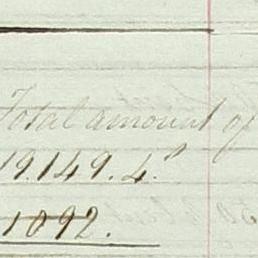 Total amount of
19.149.4.
1092.